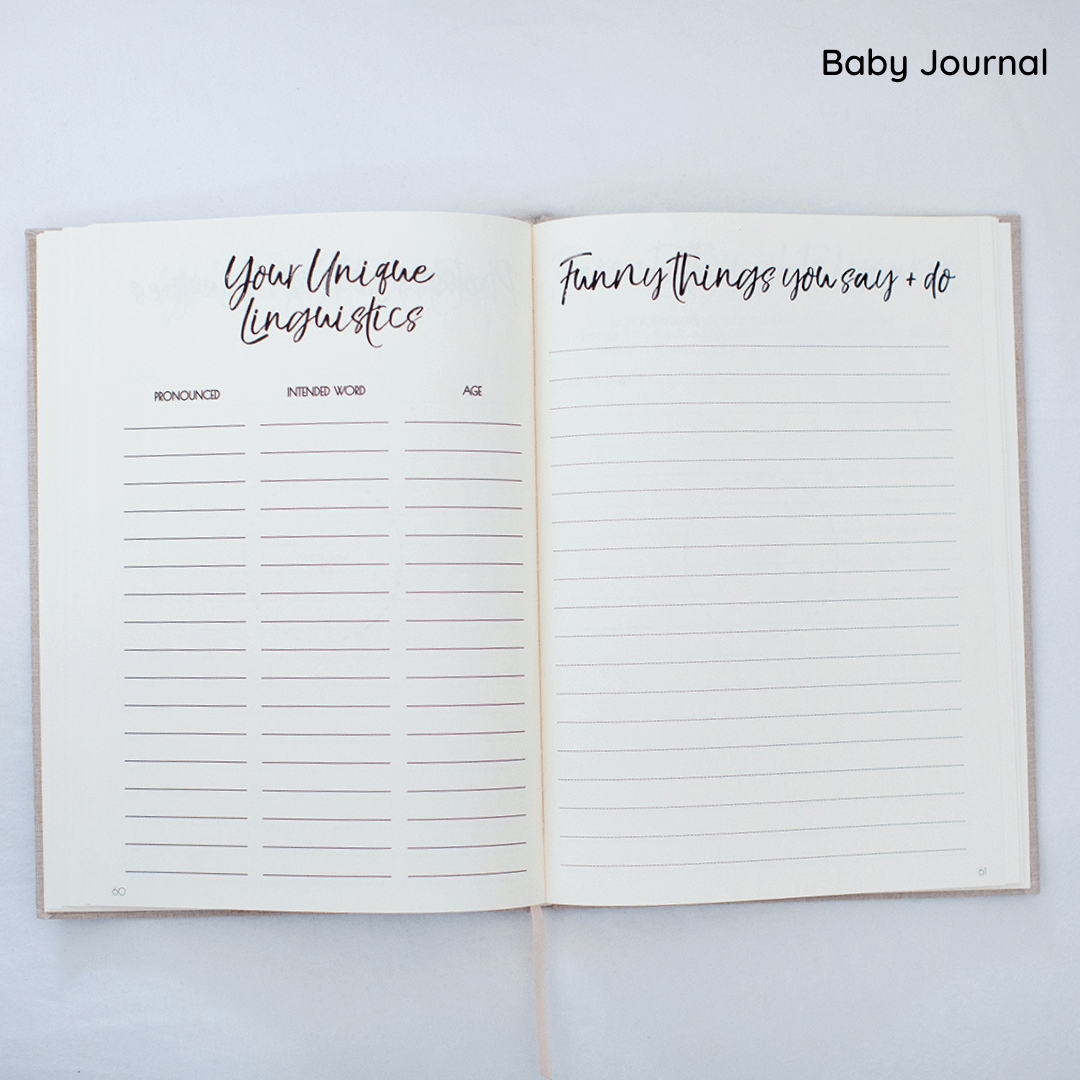 Baby Journal
Your Unique
Linguistics
PRONOUNCED INTENDED WORD AGE
60
Funny things you say + do
61